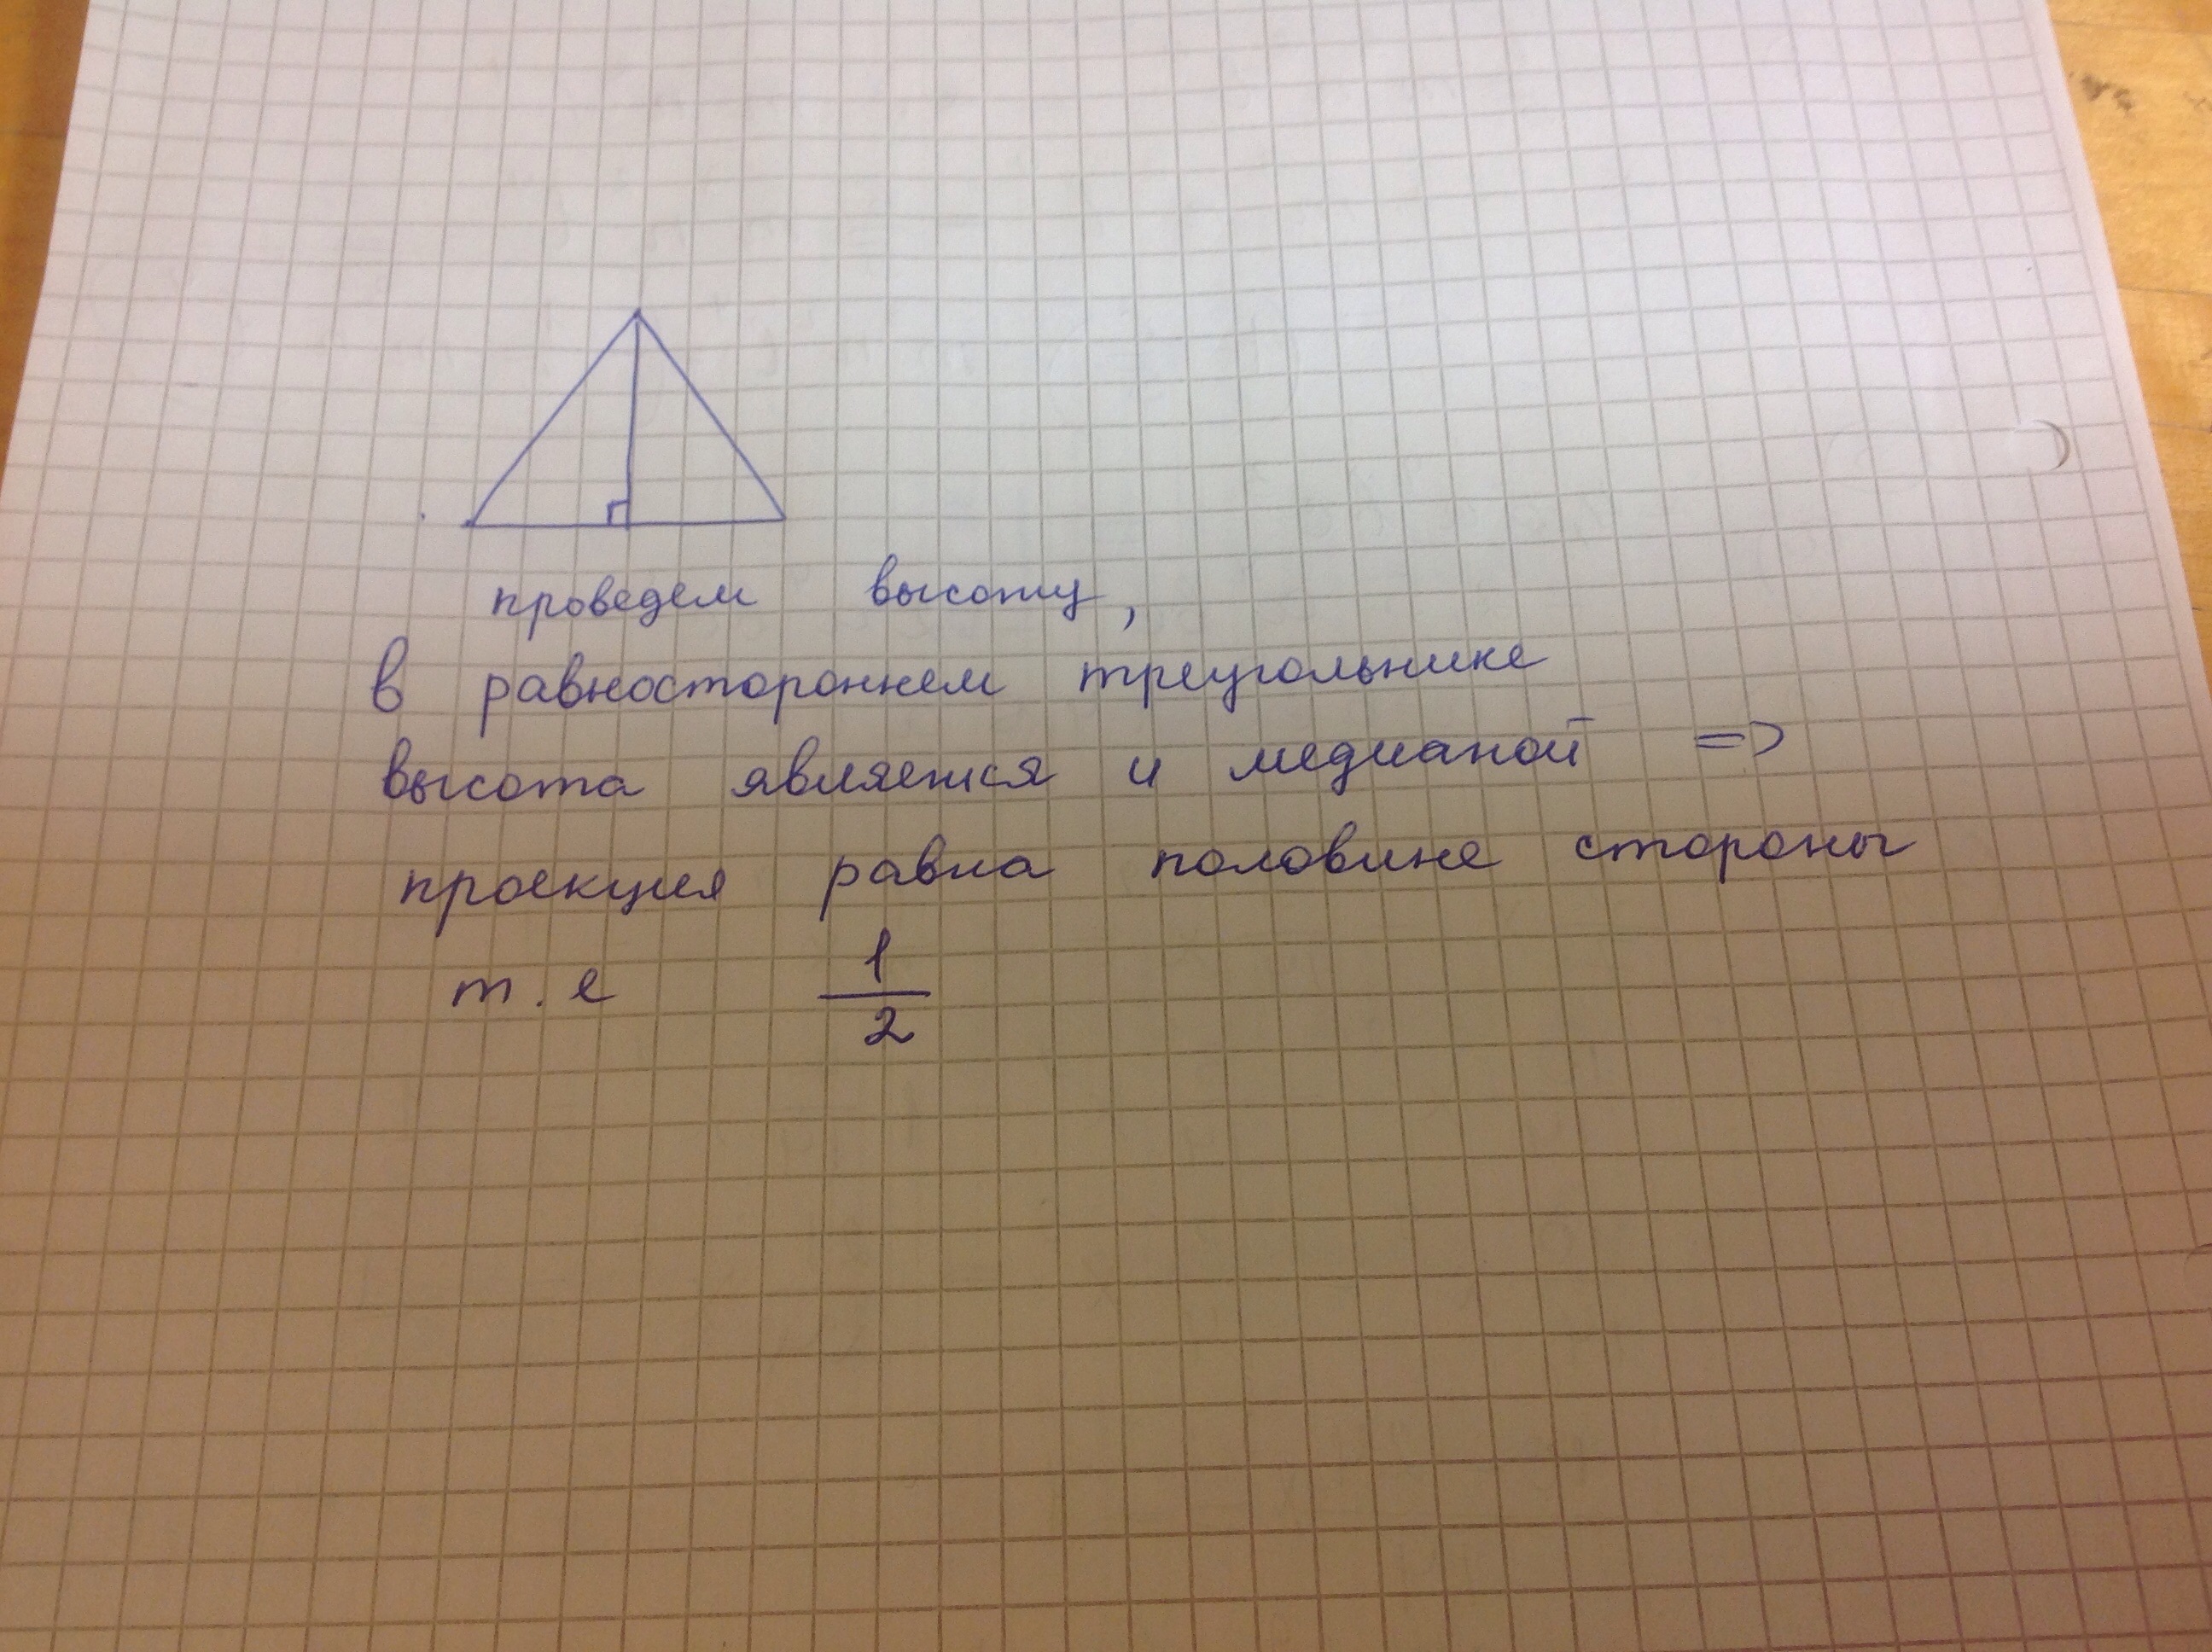 проведем высоту,
в равностороннем треугольнике
высота является и медианой =>
проекция равна половине стороны
т.е 1/2